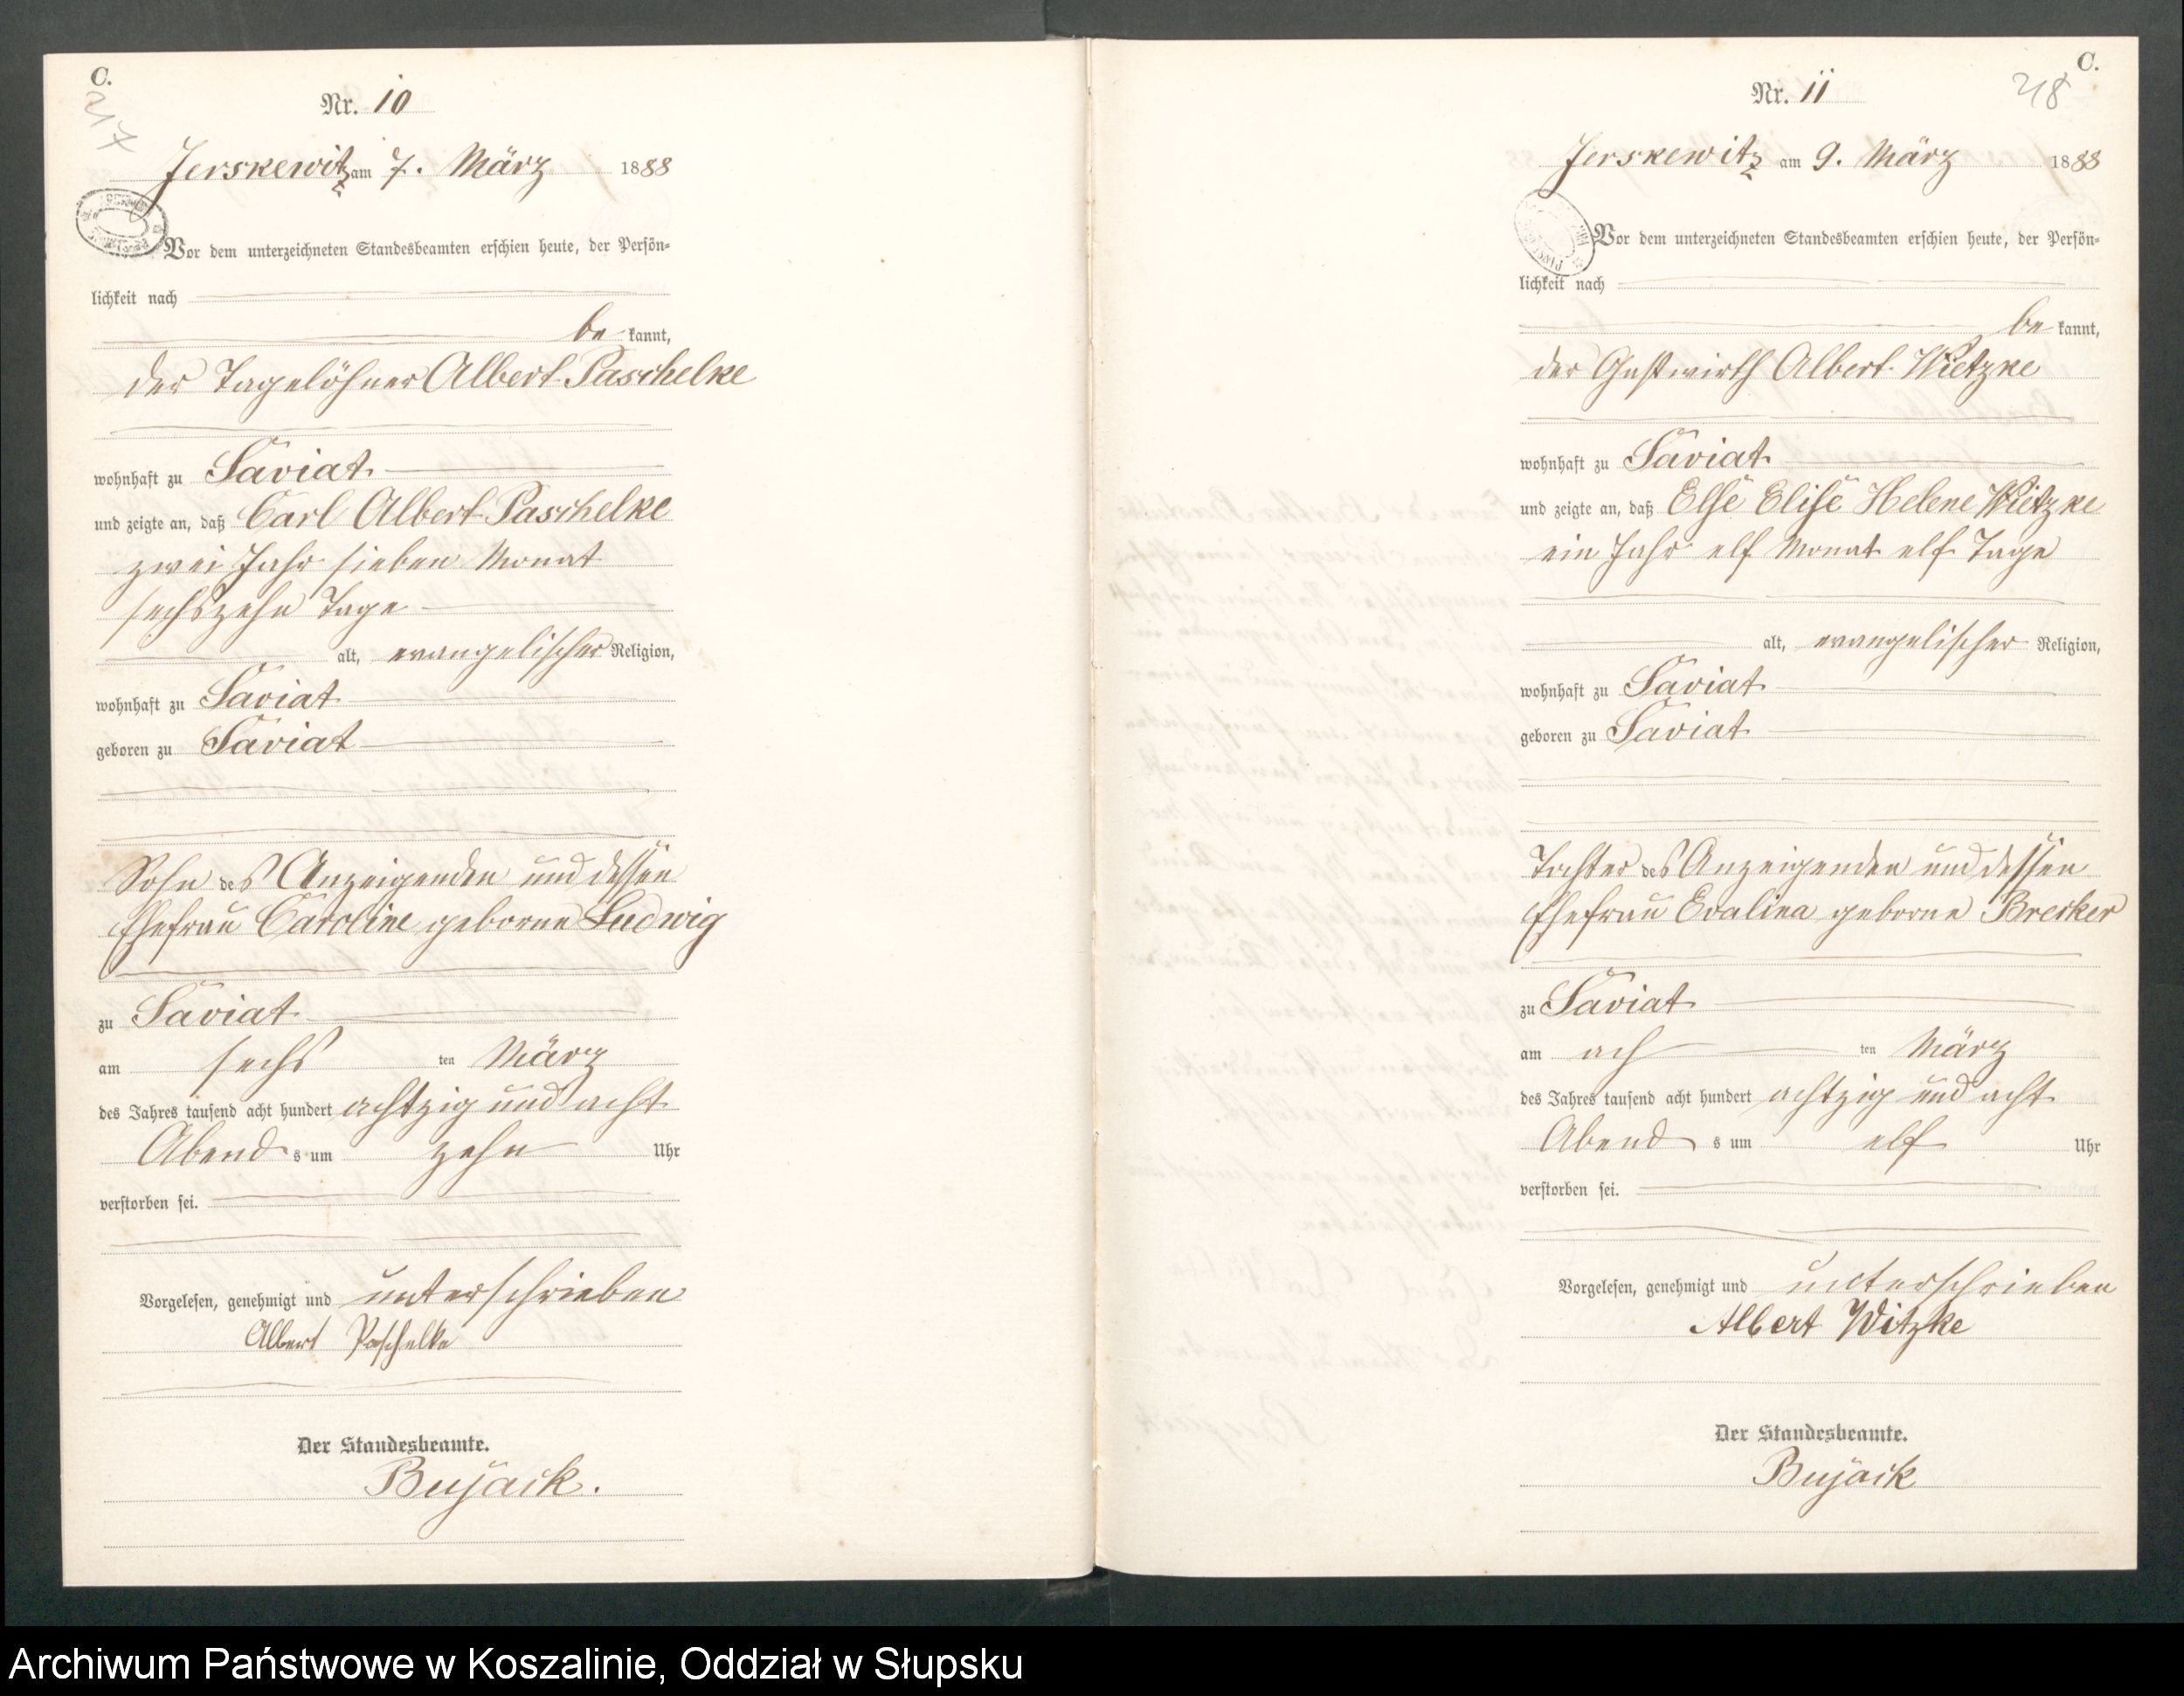 C.
217
Nr. 10
Jerskewitz am 7. März 1888
Vor dem unterzeichneten Standesbeamten erschien heute, der Persön-
lichkeit nach
be kannt,
der Tagelöhner Albert Paschelke
wohnhaft zu Saviat
und zeigte an, daß Carl Albert Paschelke
zwei Jahr sieben Monat
sechszehn Tage
alt, evangelischer Religion,
wohnhaft zu Saviat
geboren zu Saviat
Sohn des Anzeigenden und dessen
Ehefrau Caroline geborne Ludwig
zu Saviat
am sechs ten März
des Jahres tausend acht hundert achtzig und acht
Abend s um zehn Uhr
verstorben sei.
Vorgelesen, genehmigt und unterschrieben
Albert Paschelke
Der Standesbeamte.
Bujack.
C.
218
Nr. 11
Jerskewitz am 9. März 1888
Vor dem unterzeichneten Standesbeamten erschien heute, der Persön-
lichkeit nach
be kannt,
der Gastwirth Albert Wietzke
wohnhaft zu Saviat
und zeigte an, daß Else Elise Helene Wietzke
ein Jahr elf Monat elf Tage
alt, evangelischer Religion,
wohnhaft zu Saviat
geboren zu Saviat
Tochter des Anzeigenden und dessen
Ehefrau Evalina geborne Brecker
zu Saviat
am ach ten März
des Jahres tausend acht hundert achtzig und acht
Abend s um elf Uhr
verstorben sei.
Vorgelesen, genehmigt und unterschrieben
Albert Witzke
Der Standesbeamte.
Bujack
Archiwum Państwowe w Koszalinie, Oddział w Słupsku